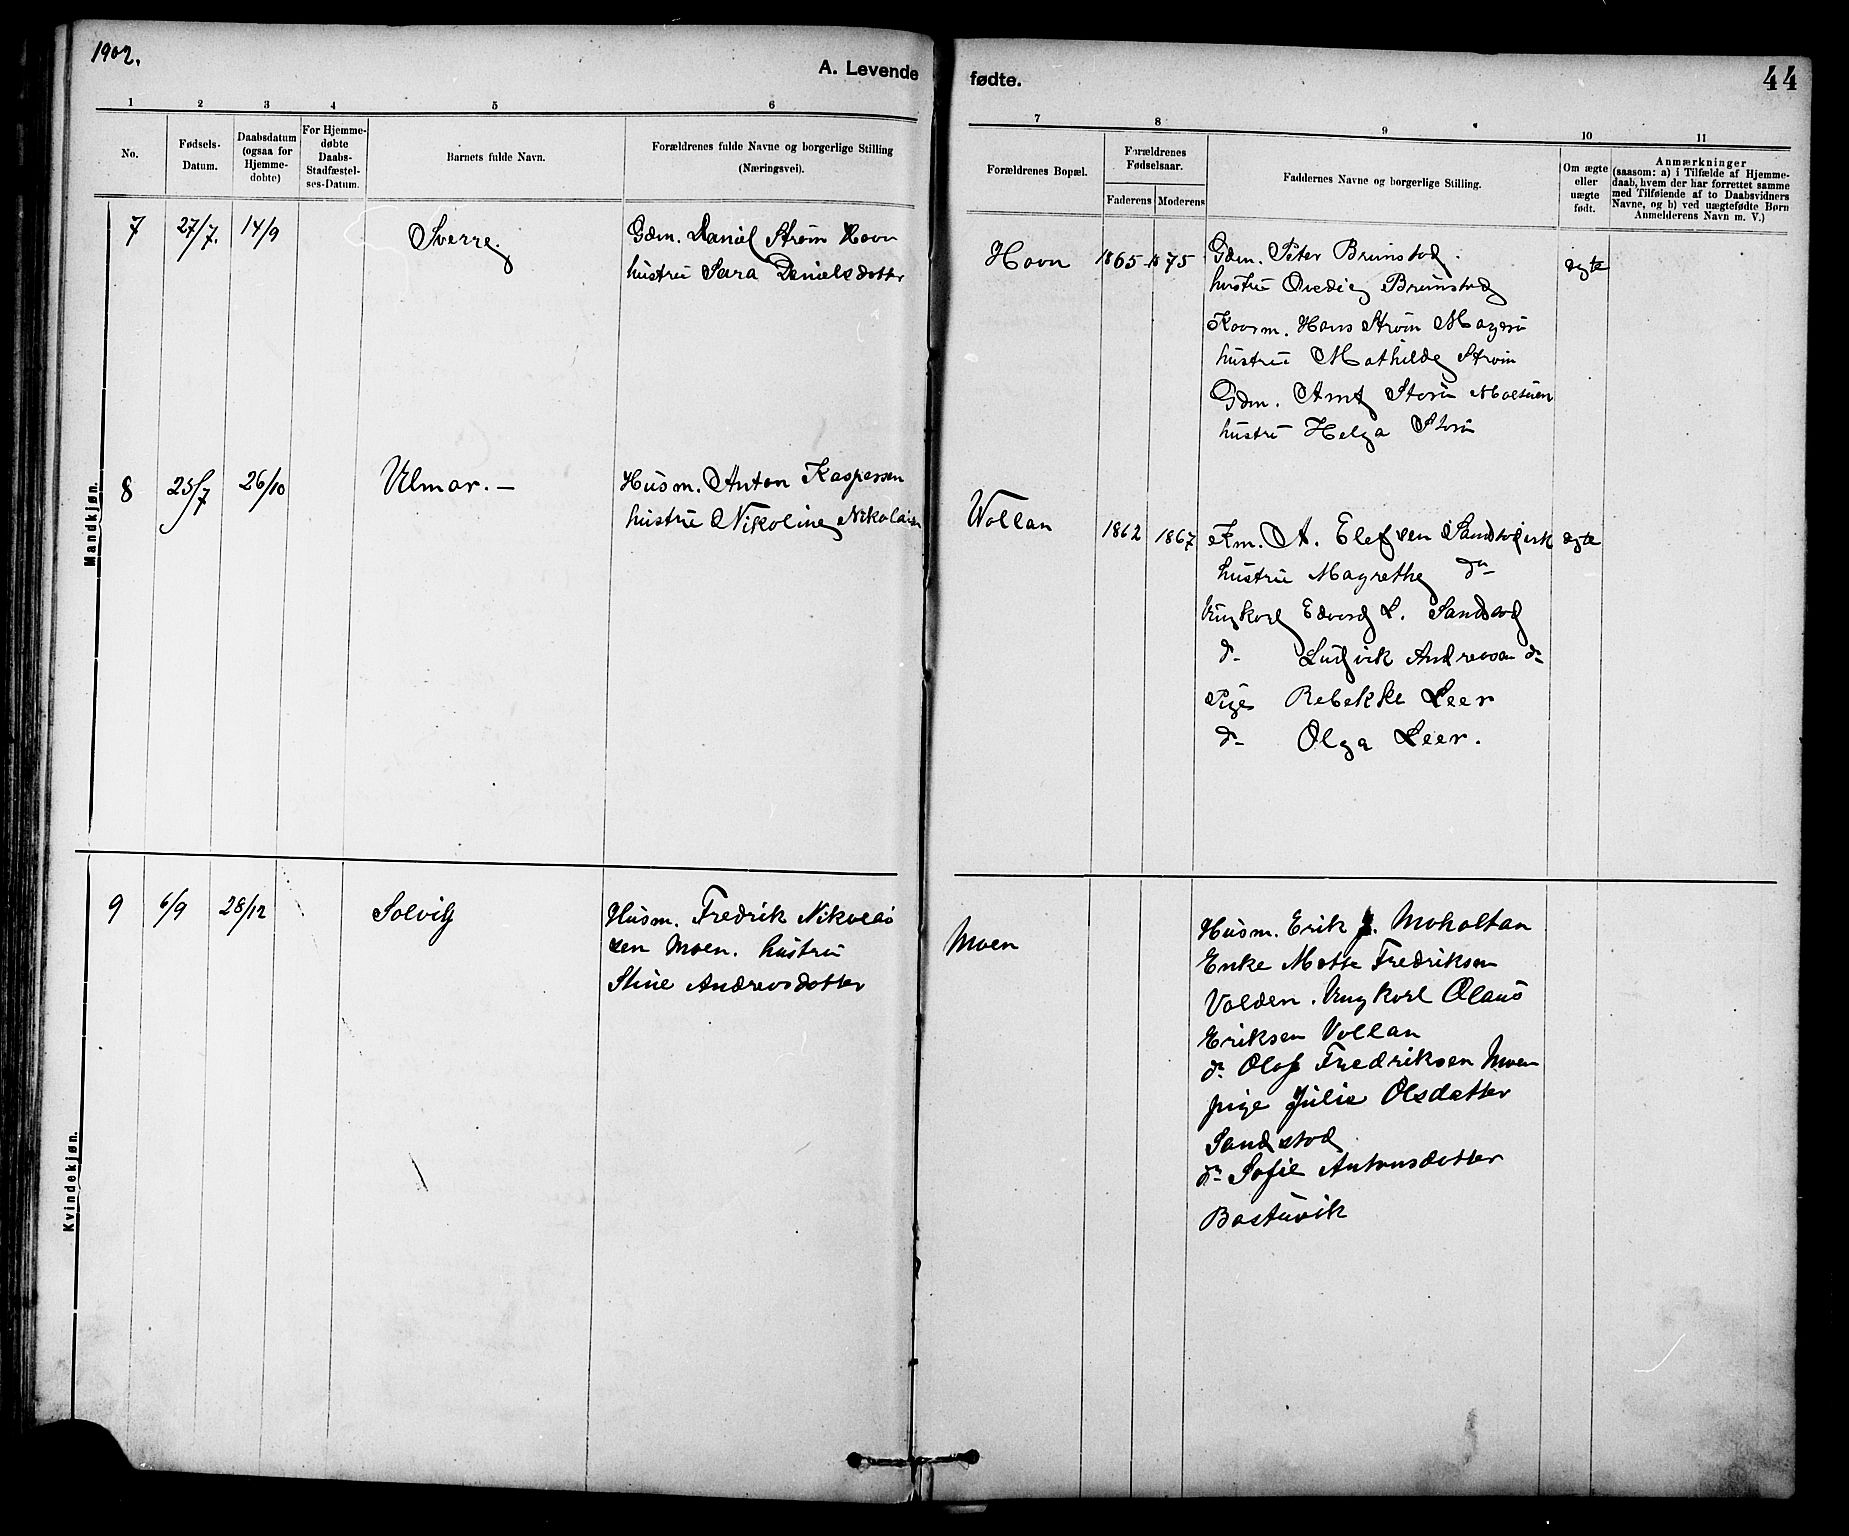 1902.
A. Levende fødte.
44
1 2 3 4 5 6 7 8 9 10 11
No.
Fødsels-
Datum.
Daabsdatum
(ogsaa for
Hjemme-
døbte)
For Hjemme-
døbte
Daabs-
Stadfæstel-
ses-Datum.
Barnets fulde Navn.
Forældrenes fulde Navne og borgerlige Stilling
(Næringsvei).
Forældrenes Bopæl.
Forældrenes
Fødselsaar.
Faderens Moderens
Faddernes Navne og borgerlige Stilling.
Om ægte
eller
uægte
født.
Anmærkninger
(saasom: a) i Tilfælde af Hjemme-
daab, hvem der har forrettet samme
med Tilføiende af to Daabsvidners
Navne, og b) ved uægtefødte Børn
Anmelderens Navn m. V.)
Mandkjøn.
7 27/7. 14/9 Sverre.
Gdm. Daniel Strøm Hovn
hustru Sara Danielsdotter
Hovn 1865 1875
Gdm. Peter Brunstad.
hustru Brunstad
Hans Strøm
hustru Mathilde Strøm
Gdm. Arnt Storø
hustru Helga Storø
ægte
8 25/7 26/10 Ulmar. —
Husm. Anton Kaspersen
hustru Nikoline
Wollan 1862 1867
A. Elefsen
hustru Magrethe do
Ungkarl Edvard L. Sandstad
do Ludvik Andreasen do
Pige Rebekke Leer
do Olga Leer.
ægte
Kvindekjøn.
9 6/9 28/12 Solvig
Husm. Fredrik Nikolai
sen Moen. hustru
Stine Andreasdotter
Moen
Husm. Erik J. Moholtan
Enke Mette Fredriksen
Volden. Ungkarl Olaus
Eriksen Vollan
do Olaf Fredriksen Moen
pige Julie Olsdatter
Sandstad
do Sofie Antonsdotter
Bastuvik